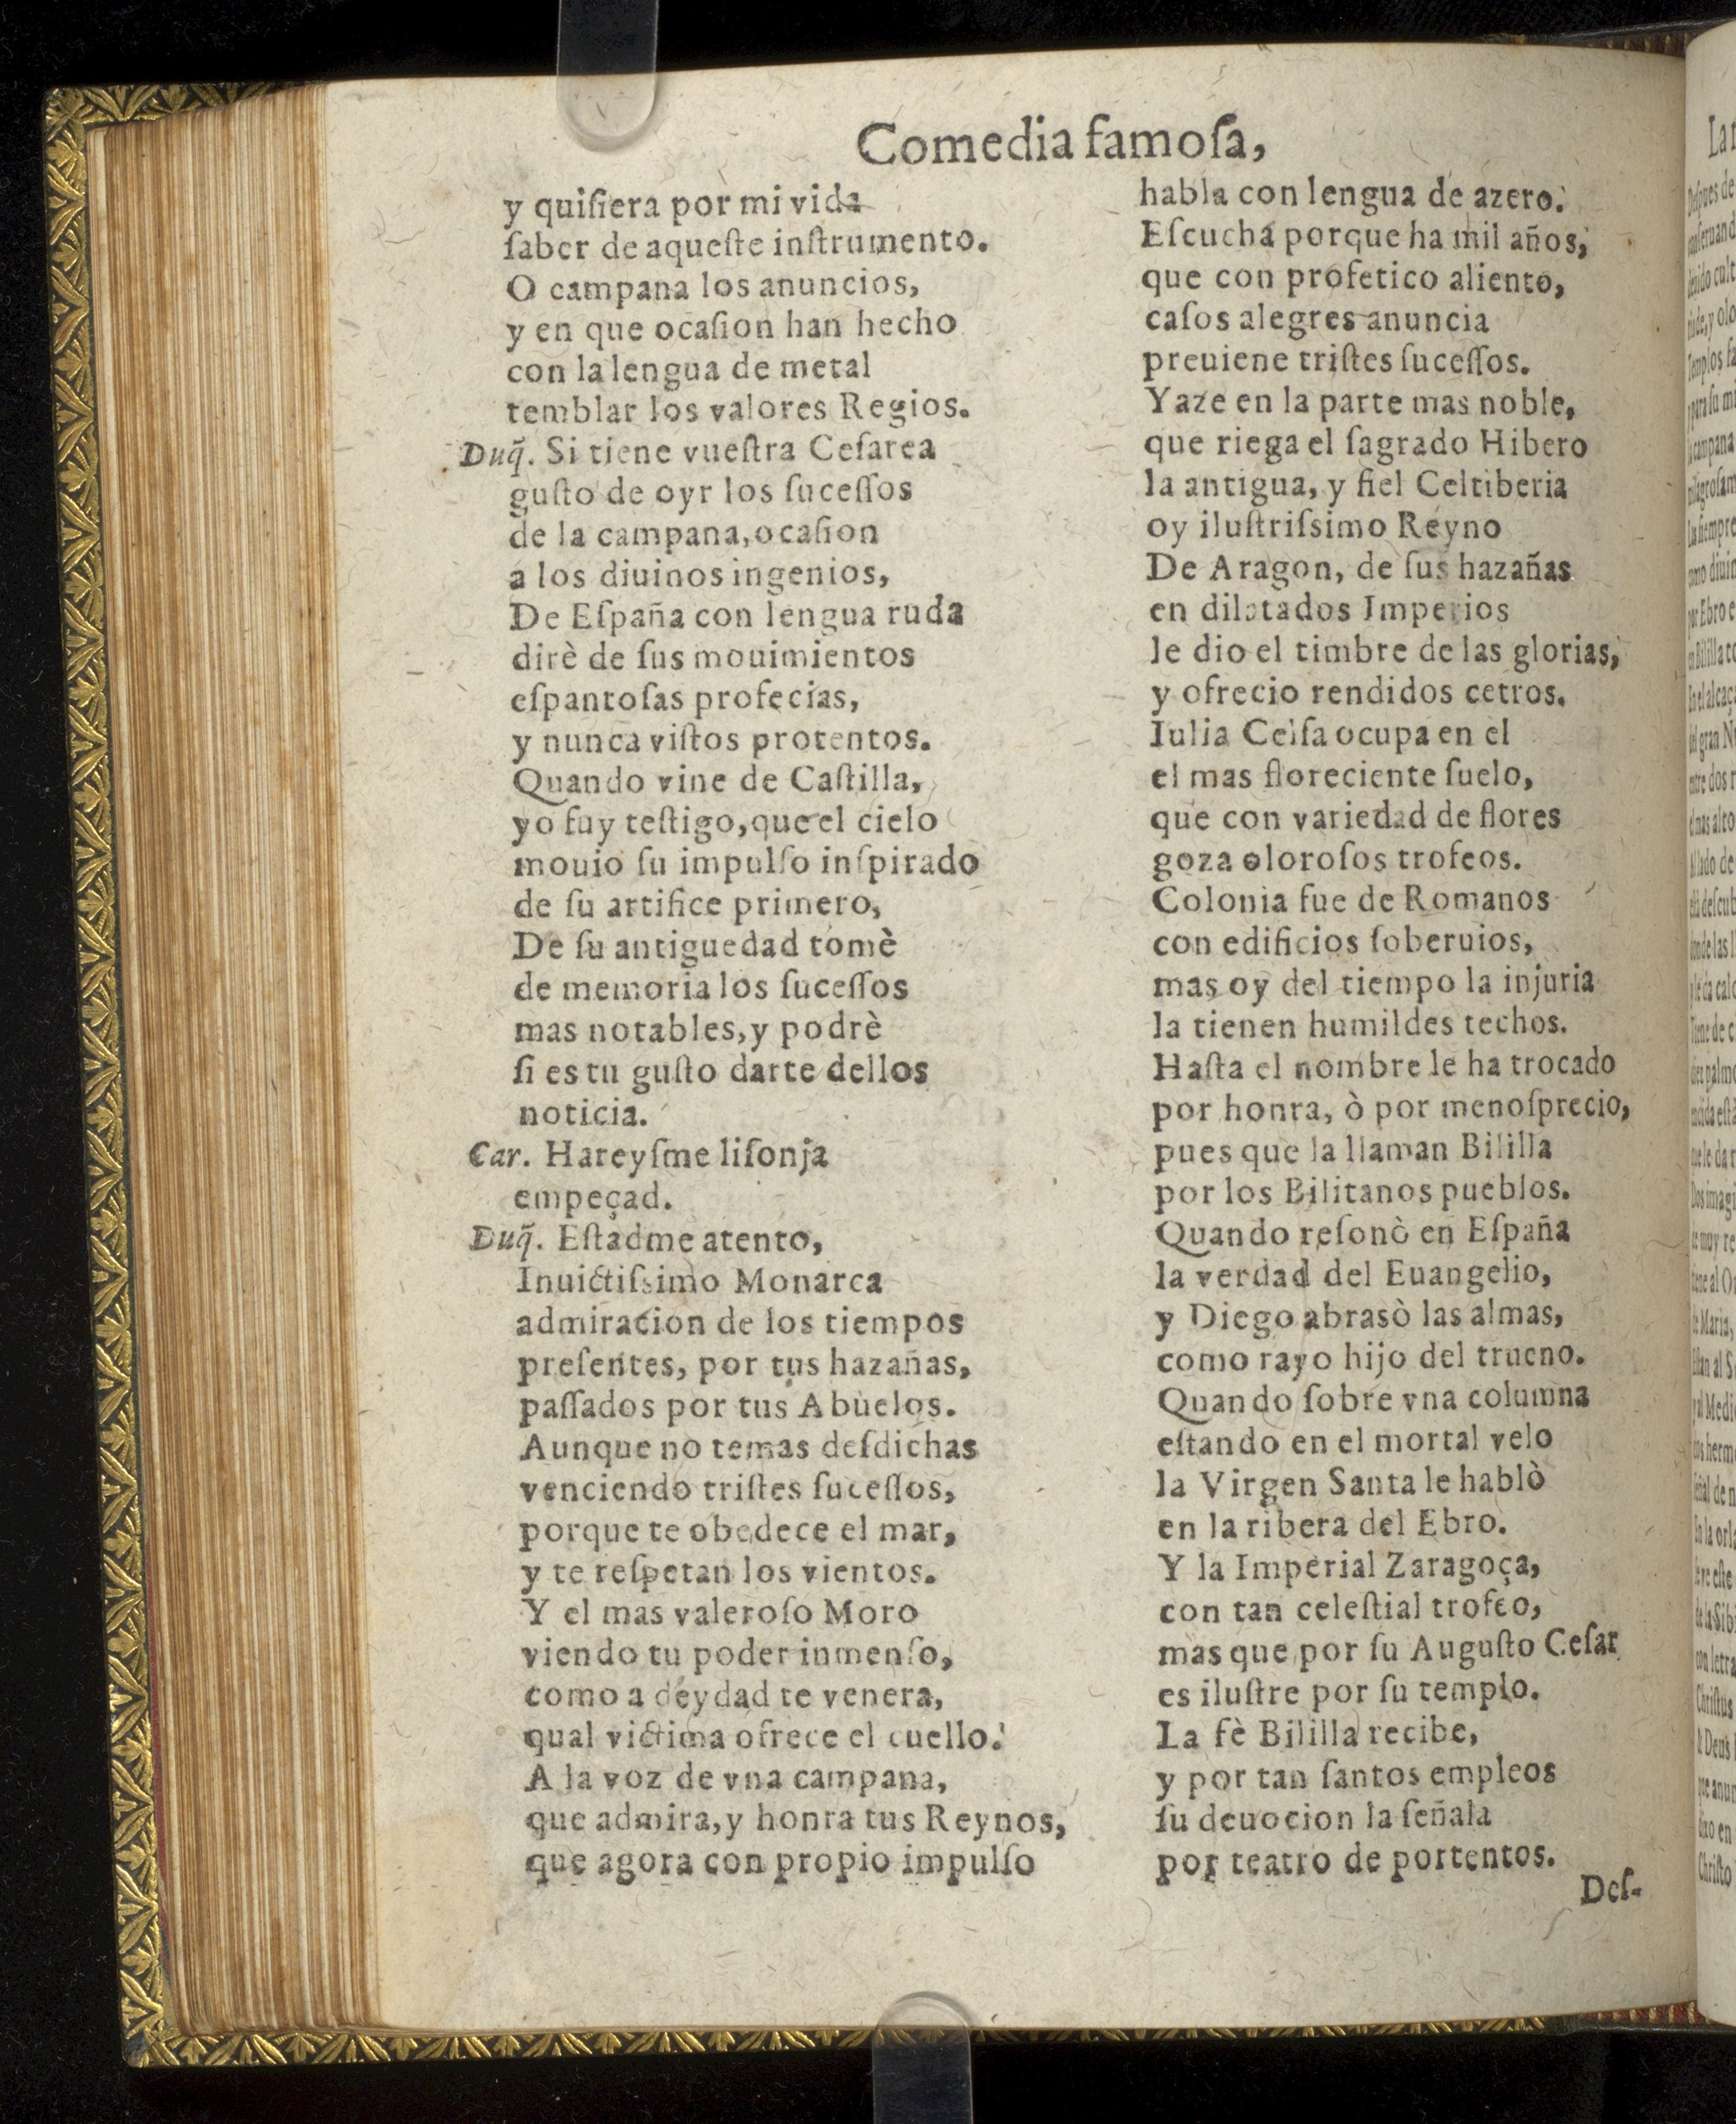 Comedia famoſa,
y quiſiera por mi vida
ſaber de aqueſte inſtrumento.
O campana los anuncios,
y en que ocaſion han hecho
con la lengua de metal
temblar los valores Regios.
Duq̃. Si tiene vueſtra Ceſarea
guſto de oyr los ſuceſſos
de la campana, ocaſion
a los diuinos ingenios,
De Eſpaña con lengua ruda
dirè de ſus mouimientos
eſpantoſas profecias,
y nunca viſtos protentos.
Quando vine de Caſtilla,
yo fuy teſtigo, que el cielo
mouio ſu impulſo inſpirado
de ſu artifice primero,
De ſu antiguedad tomè
de memoria los ſuceſſos
mas notables, y podrè
ſi es tu guſto darte dellos
noticia.
Car. Hareyſme liſonja
empeçad.
Duq̃. Eſtadme atento,
Inuictiſsimo Monarca
admiracion de los tiempos
preſentes, por tus hazañas,
paſſados por tus Abuelos.
Aunque no temas deſdichas
venciendo triſtes ſuceſſos,
porque te obedece el mar,
y te reſpetan los vientos.
Y el mas valeroſo Moro
viendo tu poder inmenſo,
como a deydad te venera,
qual victima ofrece el cuello.
A la voz de vna campana,
que admira, y honra tus Reynos,
que agora con propio impulſo
habla con lengua de azero.
Eſcucha porque ha mil años,
que con profetico aliento,
caſos alegres anuncia
preuiene triſtes ſuceſſos.
Yaze en la parte mas noble,
que riega el ſagrado Hibero
la antigua, y fiel Celtiberia
oy iluſtriſsimo Reyno
De Aragon, de ſus hazañas
en dilatados Imperios
le dio el timbre de las glorias,
y ofrecio rendidos cetros.
Iulia Celſa ocupa en el
el mas floreciente ſuelo,
que con variedad de flores
goza oloroſos trofeos.
Colonia fue de Romanos
con edificios ſoberuios,
mas oy del tiempo la injuria
la tienen humildes techos.
Haſta el nombre le ha trocado
por honra, ò por menoſprecio,
pues que la llaman Bililla
por los Bilitanos pueblos.
Quando reſonò en Eſpaña
la verdad del Euangelio,
y Diego abrasò las almas,
como rayo hijo del trueno.
Quando ſobre vna columna
eſtando en el mortal velo
la Virgen Santa le hablò
en la ribera del Ebro.
Y la Imperial Zaragoça,
con tan celeſtial trofeo,
mas que por ſu Auguſto Ceſar
es iluſtre por ſu templo.
La fè Bililla recibe,
y por tan ſantos empleos
ſu deuocion la ſeñala
por teatro de portentos.
Deſ-